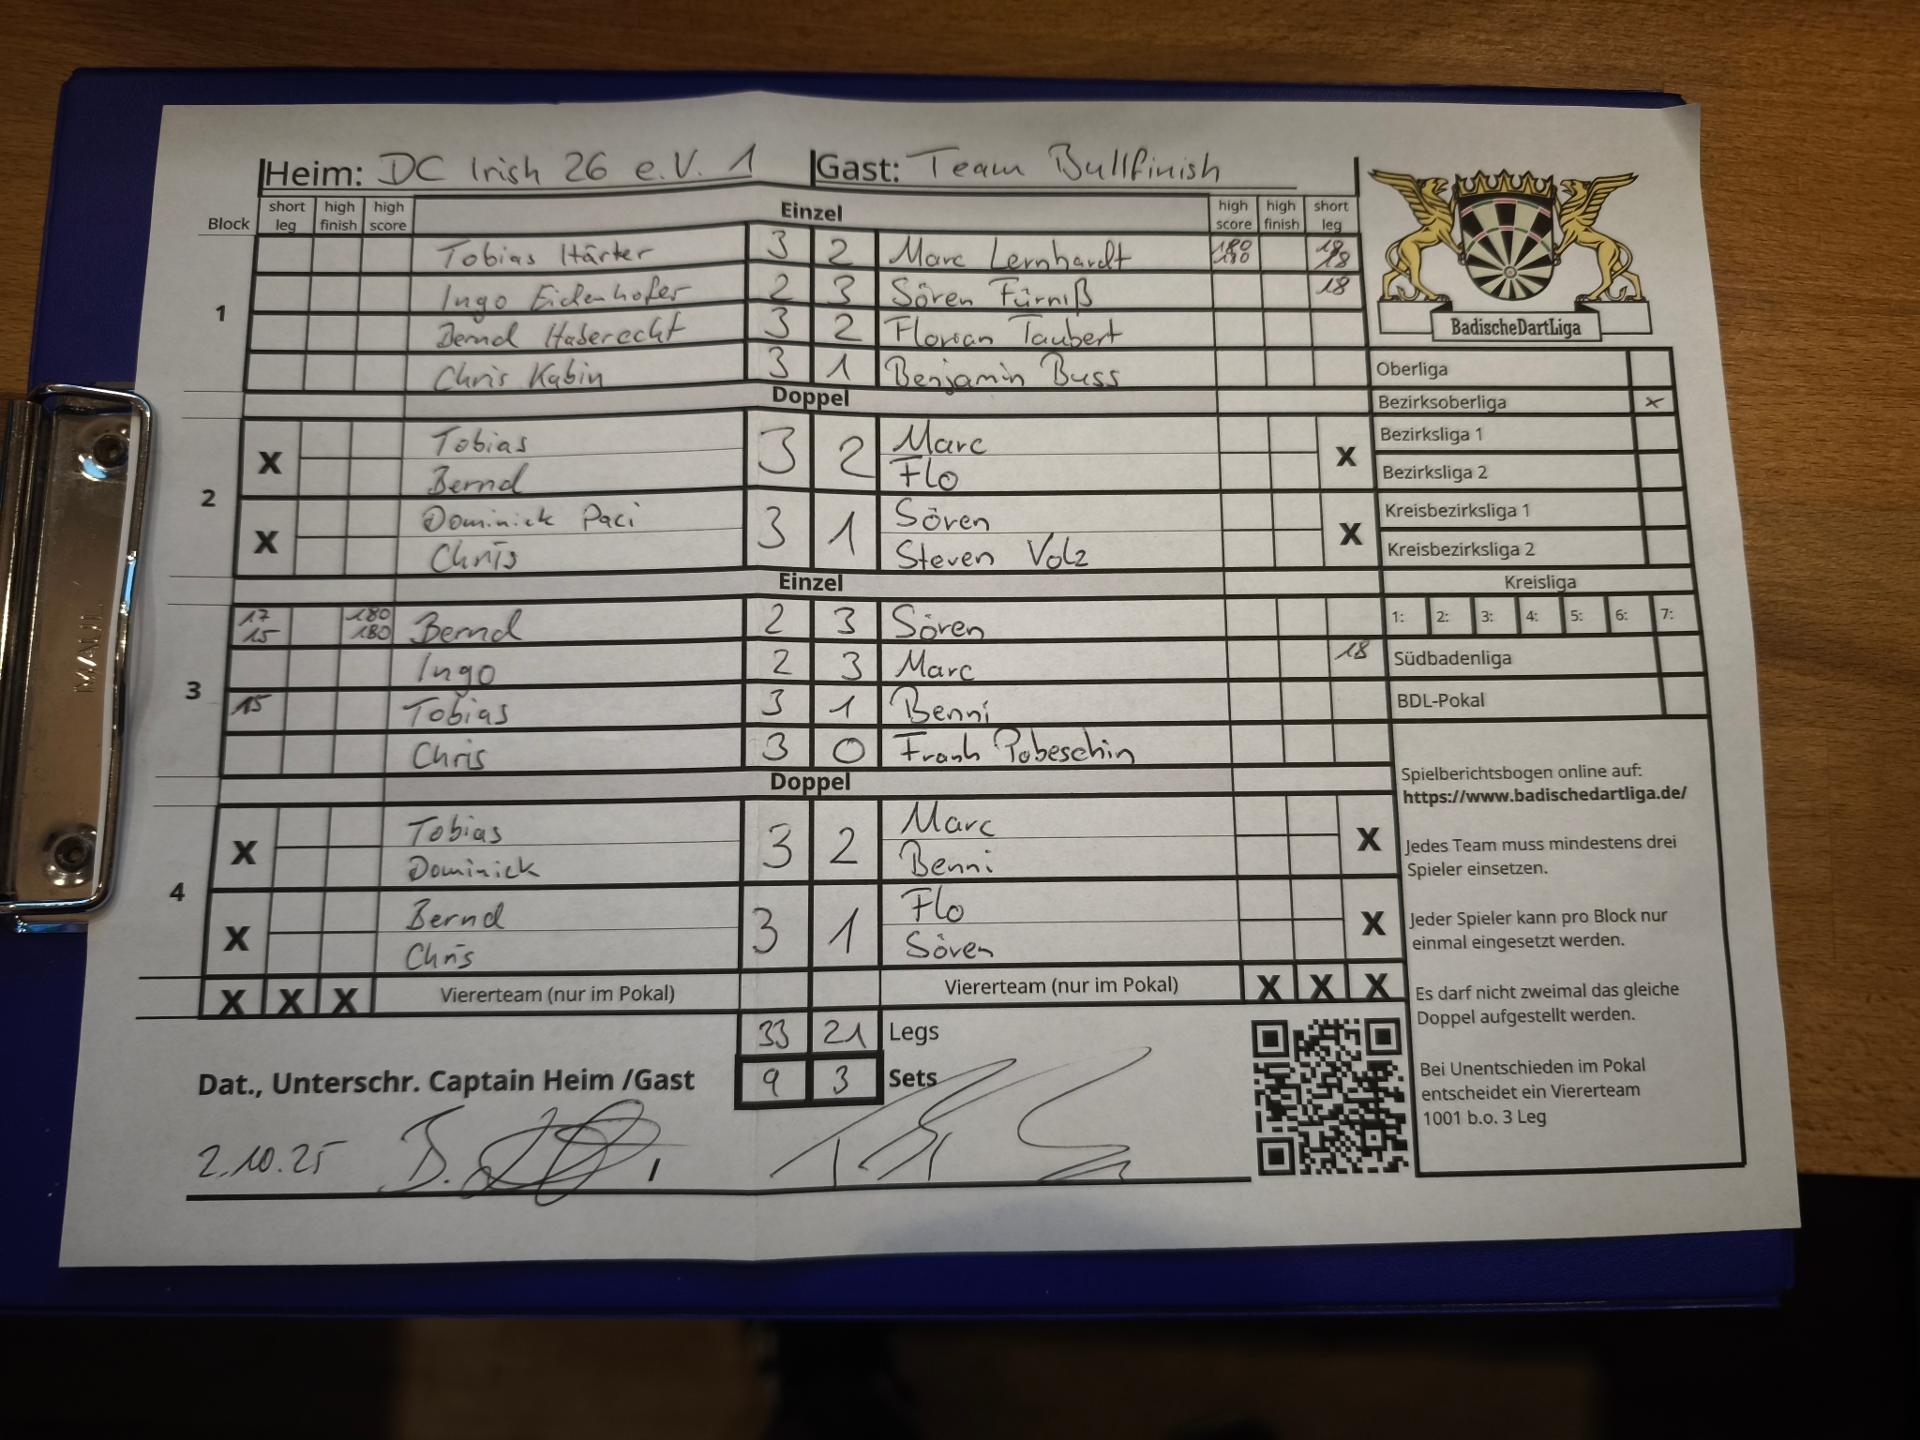 Heim: DC Irish 26 e.V. 1 Gast: Team Bullfinish
Block short leg high finish high score Einzel high score high finish short leg
1
Tobias Härter 3 2 Marc Lernhardt 180 180 18 18
Ingo Eichenhofer 2 3 Sören Fürniß 18
Bernd Haberecht 3 2 Florian Taubert
Chris Kubin 3 1 Benjamin Buss
Doppel
2
X Tobias 3 2 Marc X
Bernd Flo
X Dominick Paci 3 1 Sören X
Chris Steven Volz
Einzel
3
17 15 180 180 Bernd 2 3 Sören
Ingo 2 3 Marc 18
15 Tobias 3 1 Benni
Chris 3 0 Frank Pobeschin
Doppel
4
X Tobias 3 2 Marc X
Dominick Benni
X Bernd 3 1 Flo X
Chris Sören
X X X Viererteam (nur im Pokal) Viererteam (nur im Pokal) X X X
33 21 Legs
9 3 Sets
Dat., Unterschr. Captain Heim /Gast
2.10.25
BadischeDartLiga
Oberliga
Bezirksoberliga x
Bezirksliga 1
Bezirksliga 2
Kreisbezirksliga 1
Kreisbezirksliga 2
Kreisliga
1: 2: 3: 4: 5: 6: 7:
Südbadenliga
BDL-Pokal
Spielberichtsbogen online auf:
https://www.badischedartliga.de/
Jedes Team muss mindestens drei
Spieler einsetzen.
Jeder Spieler kann pro Block nur
einmal eingesetzt werden.
Es darf nicht zweimal das gleiche
Doppel aufgestellt werden.
Bei Unentschieden im Pokal
entscheidet ein Viererteam
1001 b.o. 3 Leg
MAUL